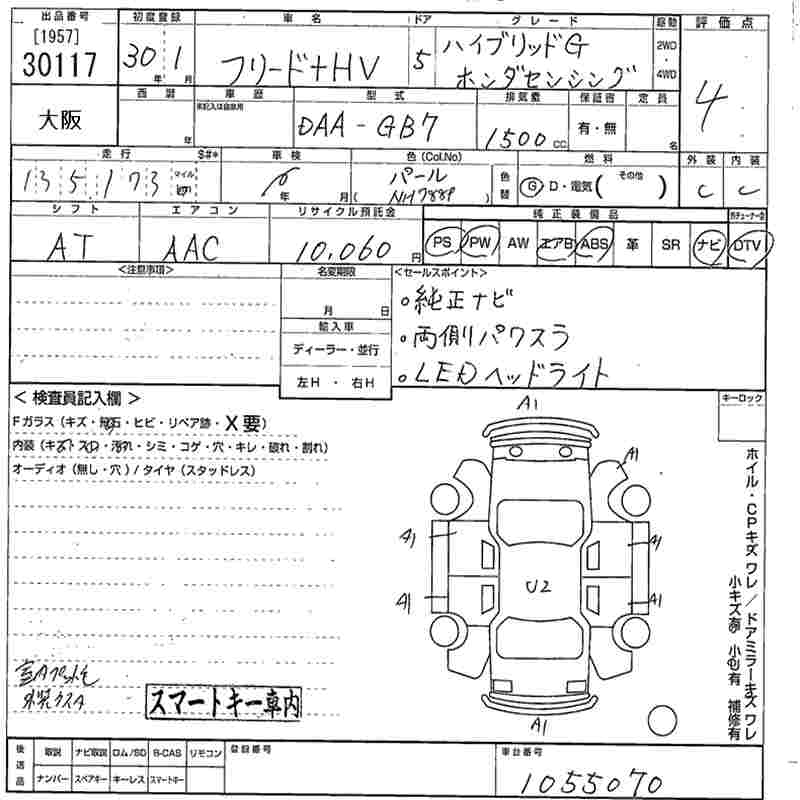 出品番号 初度登録 車名 ドア グレード 駆動 評価点
[1957]
30117
30年 1月
フリード+HV
5
ハイブリッドG
ホンダセンシング
2WD
・
4WD
4
大阪
西暦 車歴 型式 排気量 保証書 定員
未記入は自家用
年
DAA-GB7
1500cc
有・無
名
走行 $#* 車検 色(Col.No) 燃料 外装 内装
135,173
マイル
km
年 月
パール
(NH788P)
色替
G D・電気( その他 )
C C
シフト エアコン リサイクル預託金 純正装備品
AT AAC 10,060円
PS PW AW エアB ABS 革 SR ナビ DTV
<注意事項>
名変期限
月 日
輸入車
ディーラー・並行
左H・右H
<セールスポイント>
・純正ナビ
・両側パワスラ
・LEDヘッドライト
<検査員記入欄>
Fガラス(キズ・飛石・ヒビ・リペア跡・X要)
内装(キズ・スレ・汚れ・シミ・コゲ・穴・キレ・破れ・割れ)
オーディオ(無し・穴)/タイヤ(スタッドレス)
キーロック
A1
A1
A1 A1
U2
A1 A1
A1
ホイル・CPキズ ワレ/ドアミラーキズ ワレ
小キズ有 小凹有 補修有
スマートキー車内
後送品 取説 ナビ取説 ロム/SD B-CAS リモコン
ナンバー スペアキー キーレス スマートキー
登録番号
車台番号
1055070